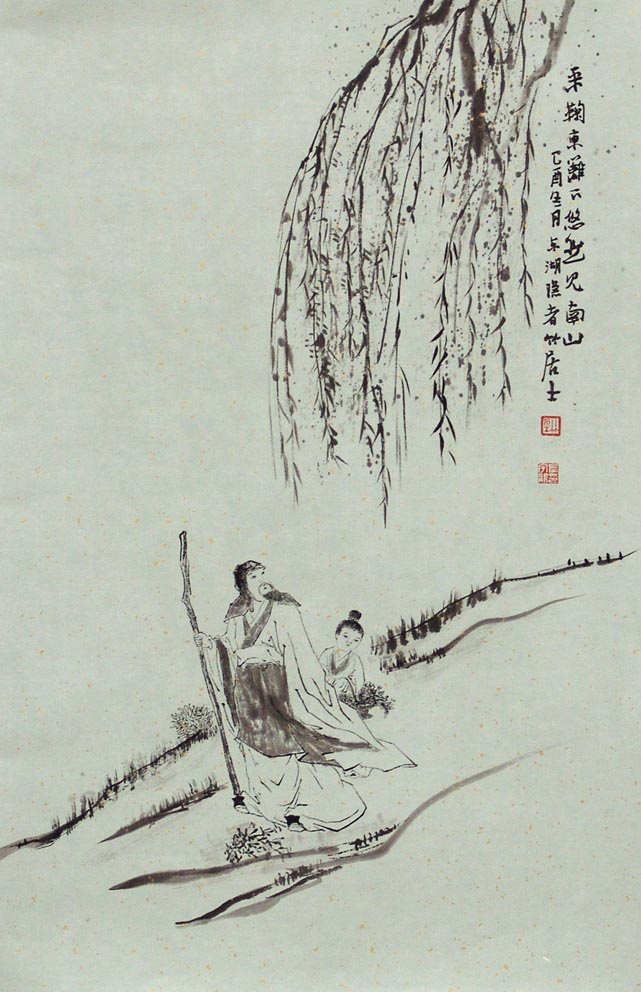 采鞠東籬下悠然见南山
乙酉冬月东湖隐者竹居士